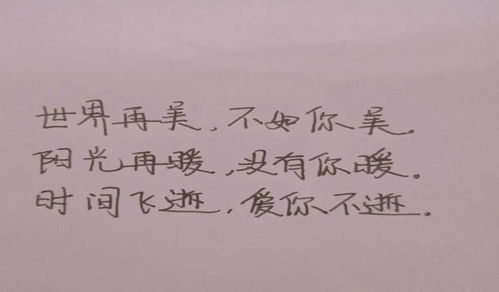 世界再美,不如你美.
阳光再暖,没有你暖.
时间飞逝,爱你不逝.